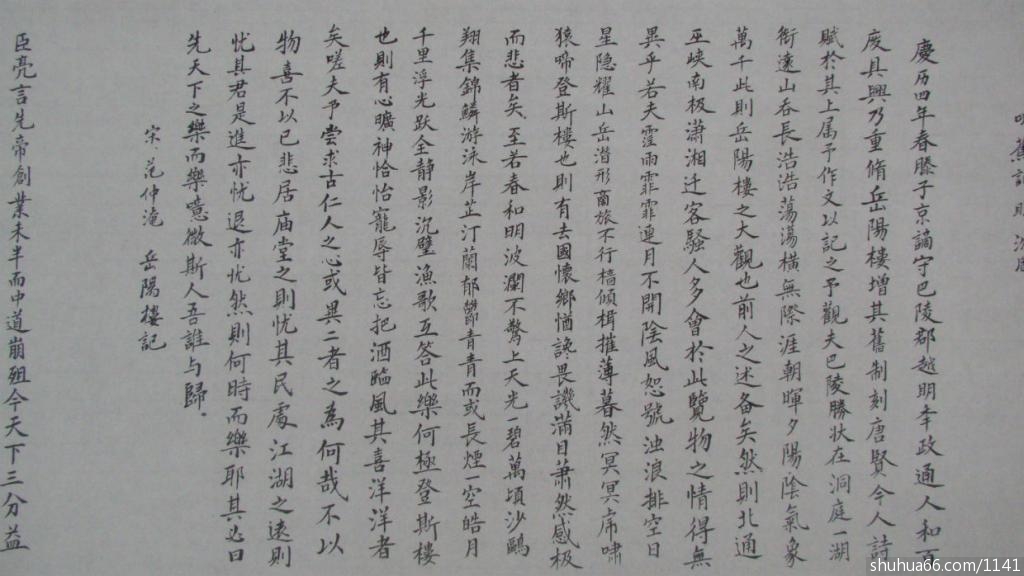 慶历四年春滕子京謫守巴陵郡越明年政通人和百
废具興乃重脩岳陽樓增其舊制刻唐賢今人詩
賦於其上属予作文以記之予觀夫巴陵勝状在洞庭一湖
銜遠山吞長浩浩蕩蕩横無際涯朝暉夕陽陰氣象
萬千此則岳陽樓之大觀也前人之述备矣然則北通
巫峡南极瀟湘迁客騷人多會於此覽物之情得無
異乎若夫霪雨霏霏連月不開陰風怒號浊浪排空日
星隐耀山岳潜形商旅不行檣傾楫摧薄暮然冥冥虎嘯
猿啼登斯樓也則有去國懷鄉讒畏譏滿目萧然感极
而悲者矣至若春和明波瀾不驚上天光一碧萬頃沙鷗
翔集錦鱗游泳岸芷汀蘭郁鬱青青而或長煙一空皓月
千里浮光跃金静影沉璧漁歌互答此樂何極登斯樓
也則有心曠神恰怡寵辱皆忘把酒臨風其喜洋洋者
矣嗟夫予尝求古仁人之心或異二者之為何哉不以
物喜不以已悲居庙堂之則忧其民處江湖之遠則
忧其君是進亦忧退亦忧然則何時而樂耶其必曰
先天下之樂而樂噫微斯人吾誰与歸.
宋 范仲淹 岳陽樓記
臣亮言先帝創業未半而中道崩殂今天下三分益
shuhua66.com/1141